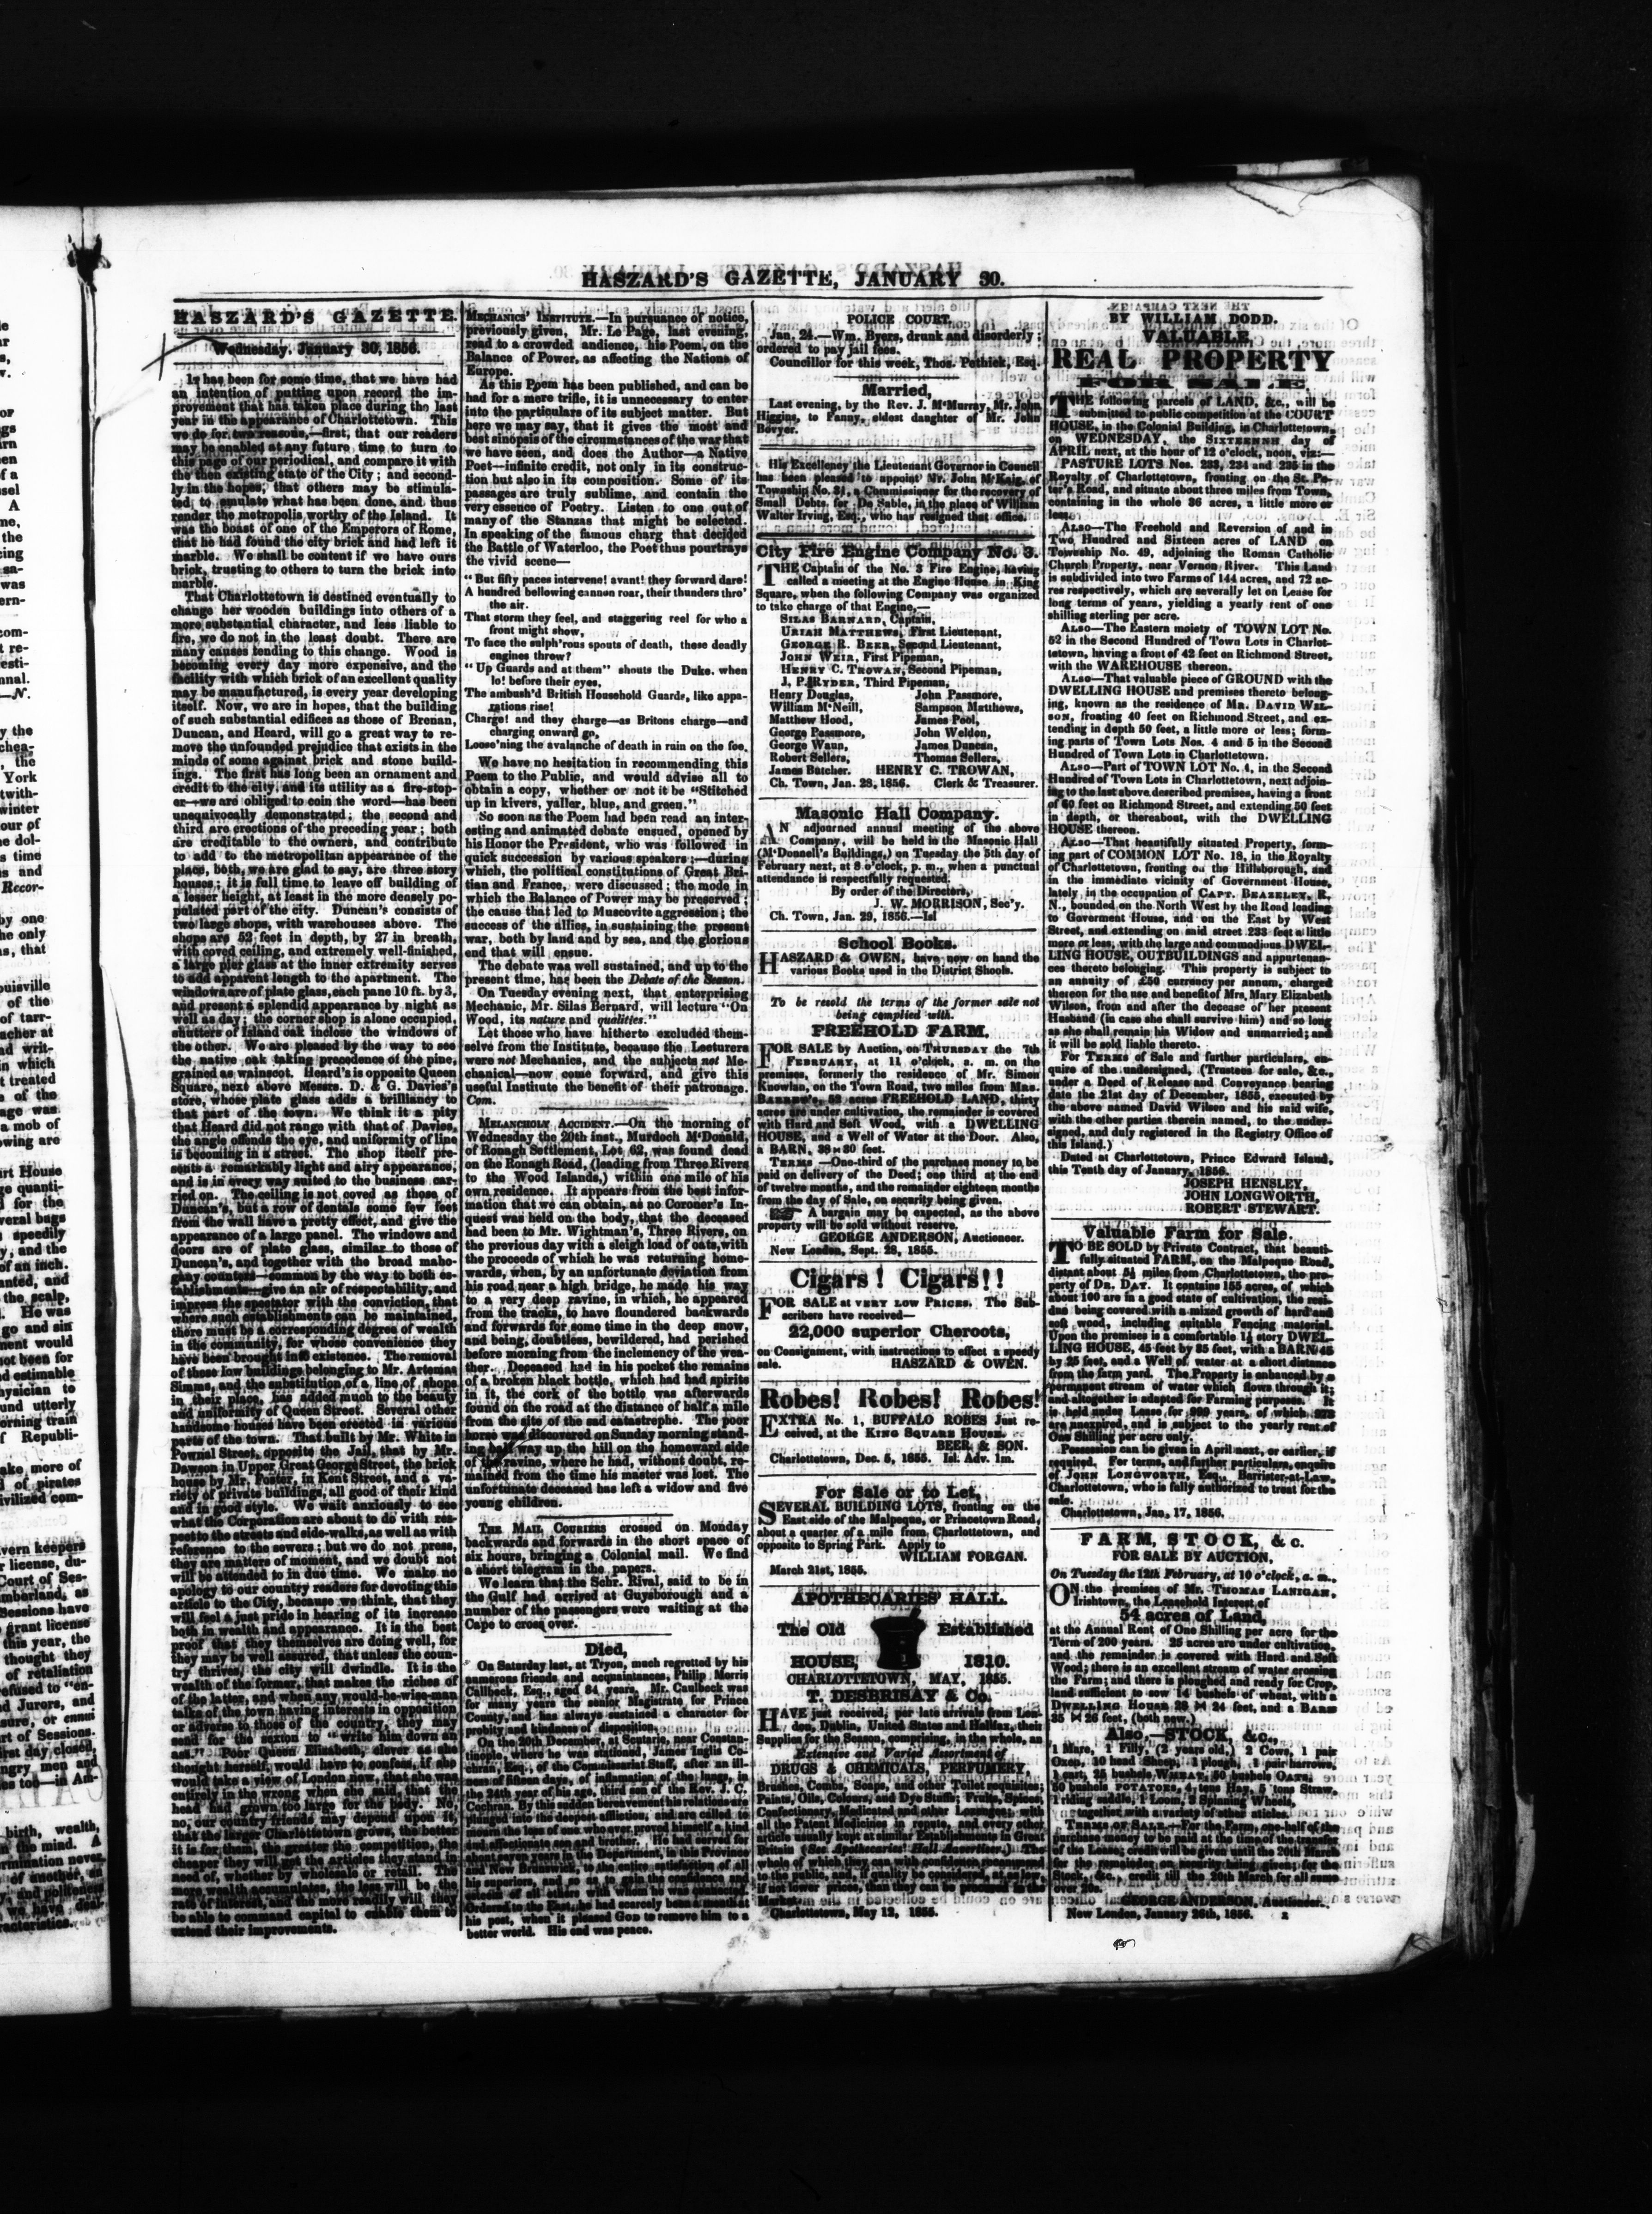 HASZARD'S GAZETTE, JANUARY 30.
HASZARD'S GAZETTE.
Wednesday, January 30, 1856.
It has been for some time, that we have had
an intention of putting upon record the im-
provement that has taken place during the last
year in the appearance of Charlottetown. This
we do for two reasons,—first, that our readers
may be enabled at any future time to turn to
this page of our periodical, and compare it with
the then existing state of the City; and second-
ly in the hopes, that others may be stimula-
ted, to emulate what has been done, and thus
render the metropolis worthy of the Island. It
was the boast of one of the Emperors of Rome,
that he had found the city brick and had left it
marble. We shall be content if we have ours
brick, trusting to others to turn the brick into
marble.
That Charlottetown is destined eventually to
change her wooden buildings into others of a
more substantial character, and less liable to
fire, we do not in the least doubt. There are
many causes tending to this change. Wood is
becoming every day more expensive, and the
facility with which brick of an excellent quality
may be manufactured, is every year developing
itself. Now, we are in hopes, that the building
of such substantial edifices as those of Brenan,
Duncan, and Heard, will go a great way to re-
move the unfounded prejudice that exists in the
minds of some against brick and stone build-
ings. The first has long been an ornament and
credit to the city, and its utility as a fire-stop-
er—we are obliged to coin the word—has been
unequivocally demonstrated; the second and
third are erections of the preceding year; both
are creditable to the owners, and contribute
to add to the metropolitan appearance of the
place, both, we are glad to say, are three story
houses; it is full time to leave off building of
a lesser height, at least in the more densely po-
pulated part of the city. Duncan's consists of
two large shops, with warehouses above. The
shops are 52 feet in depth, by 27 in breath,
with coved ceiling, and extremely well-finished,
a large pier glass at the inner extremity serves
to add apparent length to the apartment. The
windows are of plate glass, each pane 10 ft. by 3,
and present a splendid appearance by night as
well as day; the corner shop is alone occupied,
shutters of Island oak inclose the windows of
the other. We are pleased by the way to see
the native oak taking precedence of the pine,
grained as wainscot. Heard's is opposite Queen
Square, next above Messrs. D. & G. Davies's
store, whose plate glass adds a brilliancy to
that part of the town. We think it a pity
that Heard did not range with that of Davies,
the angle offends the eye, and uniformity of line
is becoming in a street. The shop itself pre-
sents a remarkably light and airy appearance,
and is in every way suited to the business car-
ried on. The ceiling is not coved as those of
Duncan's, but a row of dentals some few feet
from the wall have a pretty effect, and give the
appearance of a large panel. The windows and
doors are of plate glass, similar to those of
Duncan's, and together with the broad maho-
gany counters—common by the way to both es-
tablishments—give an air of respectability, and
impress the spectator with the conviction, that
where such establishments can be maintained,
there must be a corresponding degree of wealth
in the community, for whose convenience they
have been brought into existence. The removal
of these low buildings belonging to Mr. Artemas
Simms, and the substitution of a line of shops
in their place, has added much to the beauty
and uniformity of Queen Street. Several other
handsome houses have been erected in various
parts of the town. That built by Mr. White in
Pownal Street, opposite the Jail, that by Mr.
Dawson in Upper Great George Street, the brick
house by Mr. Foster, in Kent Street, and a va-
riety of private buildings, all good of their kind
and in good style. We wait anxiously to see
what the Corporation are about to do with res-
pect to the streets and side-walks, as well as with
reference to the sewers; but we do not press,
they are matters of moment, and we doubt not
will be attended to in due time. We make no
apology to our country readers for devoting this
article to the City, because we think, that they
will feel a just pride in hearing of its increase
both in wealth and appearance. It is the best
proof that they themselves are doing well, for
they may be well assured, that unless the coun-
try thrives, the city will dwindle. It is the
wealth of the former, that makes the riches of
of the latter, and when any would-be-wise-man
talks of the town having interests in opposition
or adverse to those of the country, they may
send for the sexton to "write him down an
ass." Poor Queen Elizabeth, clever as she
thought herself, would have to confess, if she
would take a view of London now, that she was
entirely in the wrong when she said that the
head had grown too large for the body. No,
no, our country friends may depend upon it,
that the larger Charlottetown grows, the better
it is for them, the greater the competition, the
cheaper they will get the articles they stand in
need of, whether by wholesale or retail. The
more wealth accumulates, the less will be the
rate of interest, and the more readily will they
be able to command capital to enable them to
extend their improvements.
MECHANICS' INSTITUTE.—In pursuance of notice,
previously given, Mr. Le Page, last evening,
read to a crowded audience, his Poem, on the
Balance of Power, as affecting the Nations of
Europe.
As this Poem has been published, and can be
had for a mere trifle, it is unnecessary to enter
into the particulars of its subject matter. But
here we may say, that it gives the most and
best sinopsis of the circumstances of the war that
we have seen, and does the Author—a Native
Poet—infinite credit, not only in its construc-
tion but also in its composition. Some of its
passages are truly sublime, and contain the
very essence of Poetry. Listen to one out of
many of the Stanzas that might be selected.
In speaking of the famous charg that decided
the Battle of Waterloo, the Poet thus pourtrays
the vivid scene—
"But fifty paces intervene! avant! they forward dare!
A hundred bellowing cannon roar, their thunders thro'
the air.
That storm they feel, and staggering reel for who a
front might show,
To face the sulph'rous spouts of death, these deadly
engines threw?
"Up Guards and at them" shouts the Duke. when
lo! before their eyes,
The ambush'd British Household Guards, like appa-
rations rise!
Charge! and they charge—as Britons charge—and
charging onward go,
Loose'ning the avalanche of death in ruin on the foe.
We have no hesitation in recommending this
Poem to the Public, and would advise all to
obtain a copy, whether or not it be "Stitched
up in kivers, yaller, blue, and green."
So soon as the Poem had been read an inter-
esting and animated debate ensued, opened by
his Honor the President, who was followed in
quick succession by various speakers;—during
which, the political constitutions of Great Bri-
tian and France, were discussed; the mode in
which the Balance of Power may be preserved;
the cause that led to Muscovite aggression; the
success of the allies, in sustaining the present
war, both by land and by sea, and the glorious
end that will ensue.
The debate was well sustained, and up to the
present time, has been the Debate of the Season.
On Tuesday evening next, that enterprising
Mechanic, Mr. Silas Bernard, will lecture "On
Wood, its nature and qualities."
Let those who have hitherto excluded them-
selve from the Institute, because the Lecturers
were not Mechanics, and the subjects not Me-
chanical—now come forward, and give this
useful Institute the benefit of their patronage.
Com.
MELANCHOLY ACCIDENT.—On the morning of
Wednesday the 20th inst., Murdoch M'Donald,
of Ronagh Settlement, Lot 62, was found dead
on the Ronagh Road, (leading from Three Rivers
to the Wood Islands,) within one mile of his
own residence. It appears from the best infor-
mation that we can obtain, as no Coroner's In-
quest was held on the body, that the deceased
had been to Mr. Wightman's, Three Rivers, on
the previous day with a sleigh load of oats, with
the proceeds of which he was returning home-
wards, when, by an unfortunate deviation from
his road near a high bridge, he made his way
to a very deep ravine, in which, he appeared
from the tracks, to have floundered backwards
and forwards for some time in the deep snow,
and being, doubtless, bewildered, had perished
before morning from the inclemency of the wea-
ther. Deceased had in his pocket the remains
of a broken black bottle, which had had spirits
in it, the cork of the bottle was afterwards
found on the road at the distance of half a mile
from the site of the sad catastrophe. The poor
horse was discovered on Sunday morning stand-
ing half way up the hill on the homeward side
of the ravine, where he had, without doubt, re-
mained from the time his master was lost. The
unfortunate deceased has left a widow and five
young children.
THE MAIL COURIERS crossed on Monday
backwards and forwards in the short space of
six hours, bringing a Colonial mail. We find
a short telegram in the papers.
We learn that the Schr. Rival, said to be in
the Gulf had arrived at Guysborough and a
number of the passengers were waiting at the
Cape to cross over.
Died,
On Saturday last, at Tryon, much regretted by his
numerous friends and acquaintances, Philip Morris
Callbeck, Esq., aged 84 years. Mr. Caulbeck was
for many years the senior Magistrate for Prince
County, and has always sustained a character for
probity and kindness of disposition.
On the 20th December, at Scutarie, near Constan-
tinople, where he was stationed, James Inglis Co-
chran, Esq., of the Commissariat Staff, after an ill-
ness of fifteen days, of inflamation of the lungs, in
the 24th year of his age, third son of the Rev. J. C.
Cochran. By this sudden bereavement his relations are
plunged into the deepest affliction, and are called to
mourn the loss of one who ever proved himself a kind
and affectionate son and brother. He had served for
about seven years in the Department, in this Province
and New Brunswick, to the entire satisfaction of all
his superiors, and so as to gain the confidence and
esteem of all others with whom he was connected.
Ordered to the East, he had scarcely been a month at
his post, when it pleased GOD to remove him to a
better world. His end was peace.
POLICE COURT.
Jan. 24.—Wm. Byers, drunk and disorderly;
ordered to pay jail fees.
Councillor for this week, Thos. Pethick, Esq.
Married,
Last evening, by the Rev. J. M'Murray, Mr. John
Higgins, to Fanny, eldest daughter of Mr. John
Bovyer.
His Excellency the Lieutenant Governor in Council
has been pleased to appoint Mr. John M'Kaig, of
Township No. 31, a Commissioner for the recovery of
Small Debts, for De Sable, in the place of William
Walter Irving, Esq., who has resigned that office.
City Fire Engine Company No. 3.
THE Captain of the No. 3 Fire Engine, having
called a meeting at the Engine House in King
Square, when the following Company was organized
to take charge of that Engine,—
SILAS BARNARD, Captain,
URIAH MATTHEWS, First Lieutenant,
GEORGE R. BEER, Second Lieutenant,
JOHN WEIR, First Pipeman,
HENRY C. TROWAN, Second Pipeman,
J. P. RYDER, Third Pipeman,
Henry Douglas, John Passmore,
William M'Neill, Sampson Matthews,
Matthew Hood, James Pool,
George Passmore, John Weldon,
George Waun, James Duncan,
Robert Sellers, Thomas Sellers,
James Butcher. HENRY C. TROWAN,
Ch. Town, Jan. 28, 1856. Clerk & Treasurer.
Masonic Hall Company.
AN adjourned annual meeting of the above
Company, will be held in the Masonic Hall
(M'Donnell's Buildings,) on Tuesday the 5th day of
February next, at 8 o'clock, p. m., when a punctual
attendance is respectfully requested.
By order of the Directors,
J. W. MORRISON, Sec'y.
Ch. Town, Jan. 29, 1856.—Isl
School Books.
HASZARD & OWEN, have now on hand the
various Books used in the District Shools.
To be resold the terms of the former sale not
being complied with.
FREEHOLD FARM.
FOR SALE by Auction, on THURSDAY the 7th
FEBRUARY, at 11 o'clock, a. m. on the
premises, formerly the residence of Mr. Simon
Knowlan, on the Town Road, two miles from MRS.
BARRET'S, 52 acres FREEHOLD LAND, thirty
acres are under cultivation, the remainder is covered
with Hard and Soft Wood, with a DWELLING
HOUSE, and a Well of Water at the Door. Also,
a BARN, 38 × 30 feet.
TERMS.—One-third of the purchase money to be
paid on delivery of the Deed; one third at the end
of twelve months, and the remainder eighteen months
from the day of Sale, on security being given.
A bargain may be expected, as the above
property will be sold without reserve.
GEORGE ANDERSON, Auctioneer.
New London, Sept. 28, 1855.
Cigars! Cigars!!
FOR SALE at VERY LOW PRICES. The Sub-
scribers have received—
22,000 superior Cheroots,
on Consignment, with instructions to effect a speedy
sale. HASZARD & OWEN.
Robes! Robes! Robes!
EXTRA No. 1, BUFFALO ROBES Just re-
ceived, at the KING SQUARE HOUSE.
BEER & SON.
Charlottetown, Dec. 5, 1855. Isl. Adv. 1m.
For Sale or to Let,
SEVERAL BUILDING LOTS, fronting on the
East side of the Malpeque, or Princetown Road,
about a quarter of a mile from Charlottetown, and
opposite to Spring Park. Apply to
WILLIAM FORGAN.
March 21st, 1855.
APOTHECARIES' HALL.
The Old Established
HOUSE, 1810.
CHARLOTTETOWN, MAY, 1855.
T. DESBRISAY & Co.
HAVE just received, per late arrivals from Lon-
don, Dublin, United States and Halifax, their
Supplies for the Season, comprising, in the whole, an
Extensive and Varied Assortment of
DRUGS & CHEMICALS, PERFUMERY,
Brushes, Combs, Soaps, and other Toilet requisites;
Paints, Oils, Colours, and Dye Stuffs; Fruits, Spices,
Confectionary, Medicated and other Lozenges; with
all the Patent Medicines in repute, and every other
article usually kept at similar Establishments in Great
Britain (See Apothecaries' Hall Advertiser.) The
whole of which they can with confidence recommend
to the public, and, if quality be considered, at prices
not lower prices, than they can be procured in the
Market.
Charlottetown, May 12, 1855.
BY WILLIAM DODD.
VALUABLE
REAL PROPERTY
FOR SALE.
THE following parcels of LAND, &c., will be
submitted to public competition at the COURT
HOUSE, in the Colonial Building, in Charlottetown,
on WEDNESDAY, the SIXTEENNH day of
APRIL next, at the hour of 12 o'clock, noon, viz:—
PASTURE LOTS Nos. 233, 234 and 235 in the
Royalty of Charlottetown, fronting on the St. Pe-
ter's Road, and situate about three miles from Town,
containing in the whole 36 acres, a little more or
less.
ALSO—The Freehold and Reversion of and in
Two Hundred and Sixteen acres of LAND on
Township No. 49, adjoining the Roman Catholic
Church Property, near Vernon River. This Land
is subdivided into two Farms of 144 acres, and 72 ac-
res respectively, which are severally let on Lease for
long terms of years, yielding a yearly rent of one
shilling sterling per acre.
ALSO—The Eastern moiety of TOWN LOT No.
52 in the Second Hundred of Town Lots in Charlot-
tetown, having a front of 42 feet on Richmond Street,
with the WAREHOUSE thereon.
ALSO—That valuable piece of GROUND with the
DWELLING HOUSE and premises thereto belong-
ing, known as the residence of MR. DAVID WIL-
SON, froating 40 feet on Richmond Street, and ex-
tending in depth 50 feet, a little more or less; form-
ing parts of Town Lots Nos. 4 and 5 in the Second
Hundred of Town Lots in Charlottetown.
ALSO—Part of TOWN LOT No. 4, in the Second
Hundred of Town Lots in Charlottetown, next adjoin-
ing to the last above described premises, having a front
of 60 feet on Richmond Street, and extending 50 feet
in depth, or thereabout, with the DWELLING
HOUSE thereon.
ALSO—That beautifully situated Property, form-
ing part of COMMON LOT No. 18, in the Royalty
of Charlottetown, fronting on the Hillsborough, and
in the immediate vicinity of Government House,
lately, in the occupation of CAPT. BEAZELEY, R.
N., bounded on the North West by the Road leading
to Goverment House, and on the East by West
Street, and extending on said street 233 feet a little
more or less, with the large and commodious DWEL-
LING HOUSE, OUTBUILDINGS and appurtenan-
ces thereto belonging. This property is subject to
an annuity of £50 currency per annum, charged
thereon for the use and benefit of Mrs, Mary Elizabeth
Wilson, from and after the decease of her present
Husband (in case she shall survive him) and so long
as she shall remain his Widow and unmarried; and
it will be sold liable thereto.
For TERMS of Sale and further particulars, en-
quire of the undersigned, (Trustees for sale, &c.,
under a Deed of Release and Conveyance bearing
date the 21st day of December, 1855, executed by
the above named David Wilson and his said wife,
with the other parties therein named, to the under-
signed, and duly registered in the Registry Office of
this Island.)
Dated at Charlottetown, Prince Edward Island,
this Tenth day of January, 1856.
JOSEPH HENSLEY,
JOHN LONGWORTH,
ROBERT STEWART.
Valuable Farm for Sale.
TO BE SOLD by Private Contract, that beauti-
fully situated FARM, on the Malpeque Road,
distant about 5½ miles from Charlottetown, the pro-
perty of DR. DAY. It contains 155 acres, of which
about 100 are in a good state of cultivation, the resi-
due being covered with a mixed growth of hard and
soft wood, including suitable Fencing material.
Upon the premises is a comfortable 1½ story DWEL-
LING HOUSE, 45 feet by 35 feet, with a BARN 45
by 25 feet, and a Well of water at a short distance
from the farm yard. The Property is enhanced by a
permanent stream of water which flows through it;
and altogether is adapted for Farming purposes. It
is held under Lease for 999 years, of which 973
are unexpired, and is subject to the yearly rent of
One Shilling per acre only.
Possession can be given in April next, or earlier, if
required. For terms, and further particulars, enquire
of JOHN LONGWORTH, Esq., Barrister-at-Law,
Charlottetown, who is fully authorized to treat for the
sale.
Charlottetown, Jan. 17, 1856.
FARM, STOCK, &c.
FOR SALE BY AUCTION,
On Tuesday the 12th February, at 10 o'clock, a. m.,
ON the premises of Mr. THOMAS LANIGAN,
Irishtown, the Leasehold Interest of
54 acres of Land,
at the Annual Rent of One Shilling per acre for the
Term of 200 years. 25 acres are under cultivation,
and the remainder is covered with Hard and Soft
Wood; there is an excellent stream of water crossing
the Farm; and there is ploughed and ready for Crop,
land sufficient to sow 14 bushels of wheat, with a
DWELLING HOUSE 28 × 24 feet, and a BARN
35 × 26 feet, (both new.)
Also, STOCK, &c.,
1 Mare, 1 Filly, (2 years old,) 2 Cows, 1 pair
Oxen, 10 head Sheep, 1 plough, 1 pair harrows,
1 cart, 25 bushels WHEAT, 50 bushels OATS,
50 bushels POTATOES, 4 tons Hay, 5 tons Straw,
1 riding saddle, 1 Loom, 2 Spinning Wheels,
together with a variety of other aticles.
TERMS OF SALE.—For the Farm, one-half of the
purchase money to be paid at the time of the transfer
of the Lease; credit will be given until the 20th March
for the remainder, on security being given; for the
Stock, &c., credit till the 20th March for all sums
over 20s.
GEORGE ANDERSON, Auctioneer.
New London, January 26th, 1856.